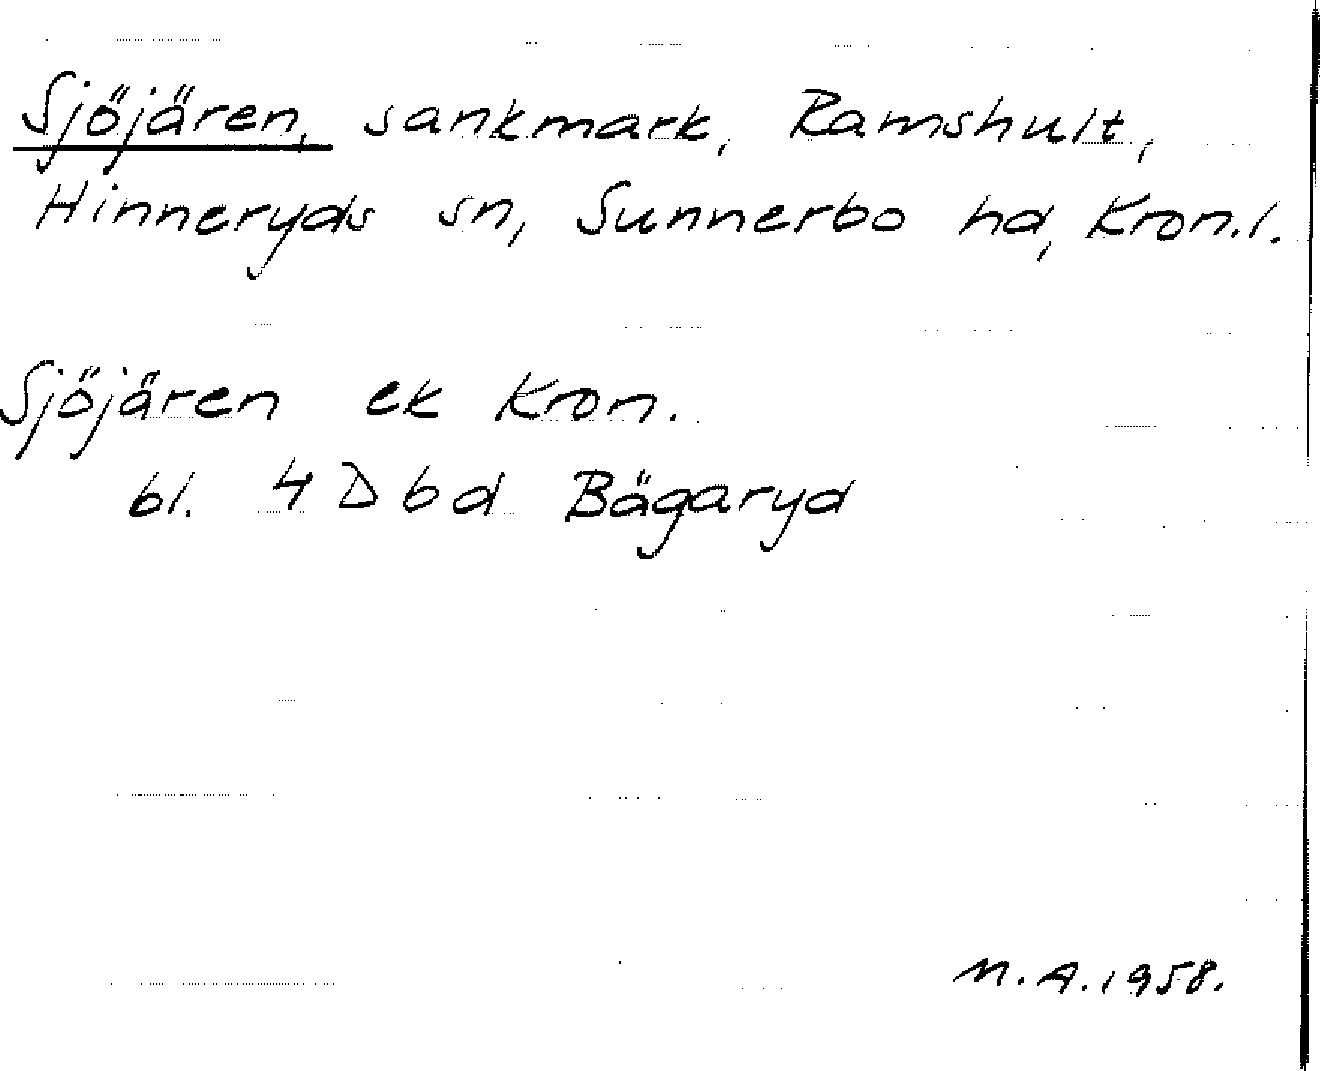 Sjöjären, sankmark, Ramshult,
Hinneryds sn, Sunnerbo hd, Kron.l.
Sjöjären ek Kron.
bl. 4 D b d Bägaryd
M.A. 1958.